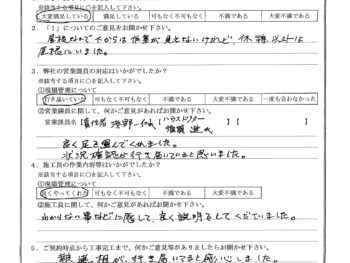 ※該当する項目に○を記入して下さい。
大変満足している 満足している 可もなく不可もなく 不満である 大変不満である
2．「1」についてのご意見をお聞かせ下さい。
屋根なので下からは作業が見えないけれど、休憩以外は
屋根にいました。
3．弊社の営業課員の対応はいかがでしたか？
※該当する項目に○を記入して下さい。
①現場管理について
行き届いていた 可もなく不可もなく 不満である 大変不満である 一度も会わなかった
②営業課員について、何かご意見があればお聞かせ下さい。
営業課員名【責任者 【ハウスドクター
】【 】
良く足を運んでくれました。
状況確認が行き届いていると思いました。
4．施工員の作業内容等はいかがでしたか？
※該当する項目に○を記入して下さい。
①現場管理について
良くやってくれた 可もなく不可もなく 不満である 大変不満である
②施工員に関して、何かご意見があればお聞かせ下さい。
わからない事などに関して、良く説明をしてくださいました。
5．ご契約時点から工事完工まで、何かご意見等がありましたらお聞かせ下さい。
報連相が、行き届いてると感心しました。